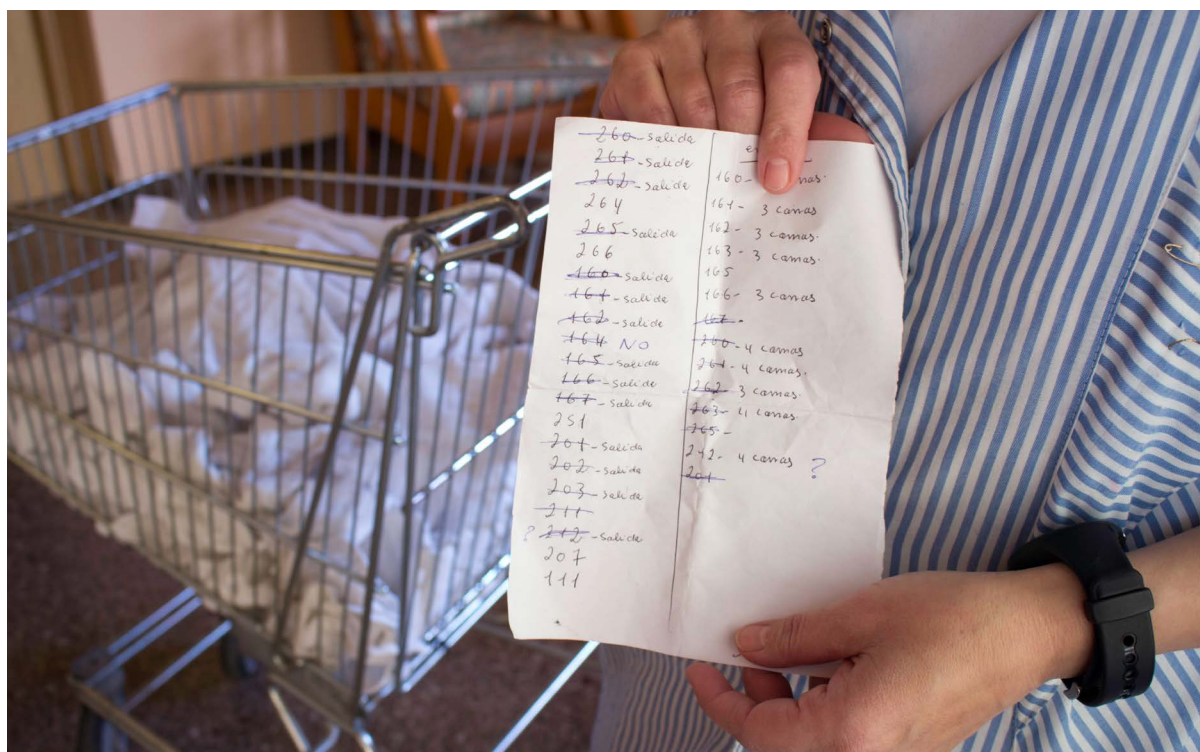 260 - salida
261 - salida
262 - salida
264
265 - salida
266
160 - salida
161 - salida
162 - salida
164 NO
165 - salida
166 - salida
167 - salida
251
201 - salida
202 - salida
203 - salida
211
? 212 - salida
207
111
160 -
161 - 3 camas
162 - 3 camas.
163 - 3 camas.
165
166 - 3 camas
167 -
260 - 4 camas
261 - 4 camas.
262 - 3 camas.
263 - 4 camas.
265 -
242 - 4 camas ?
201